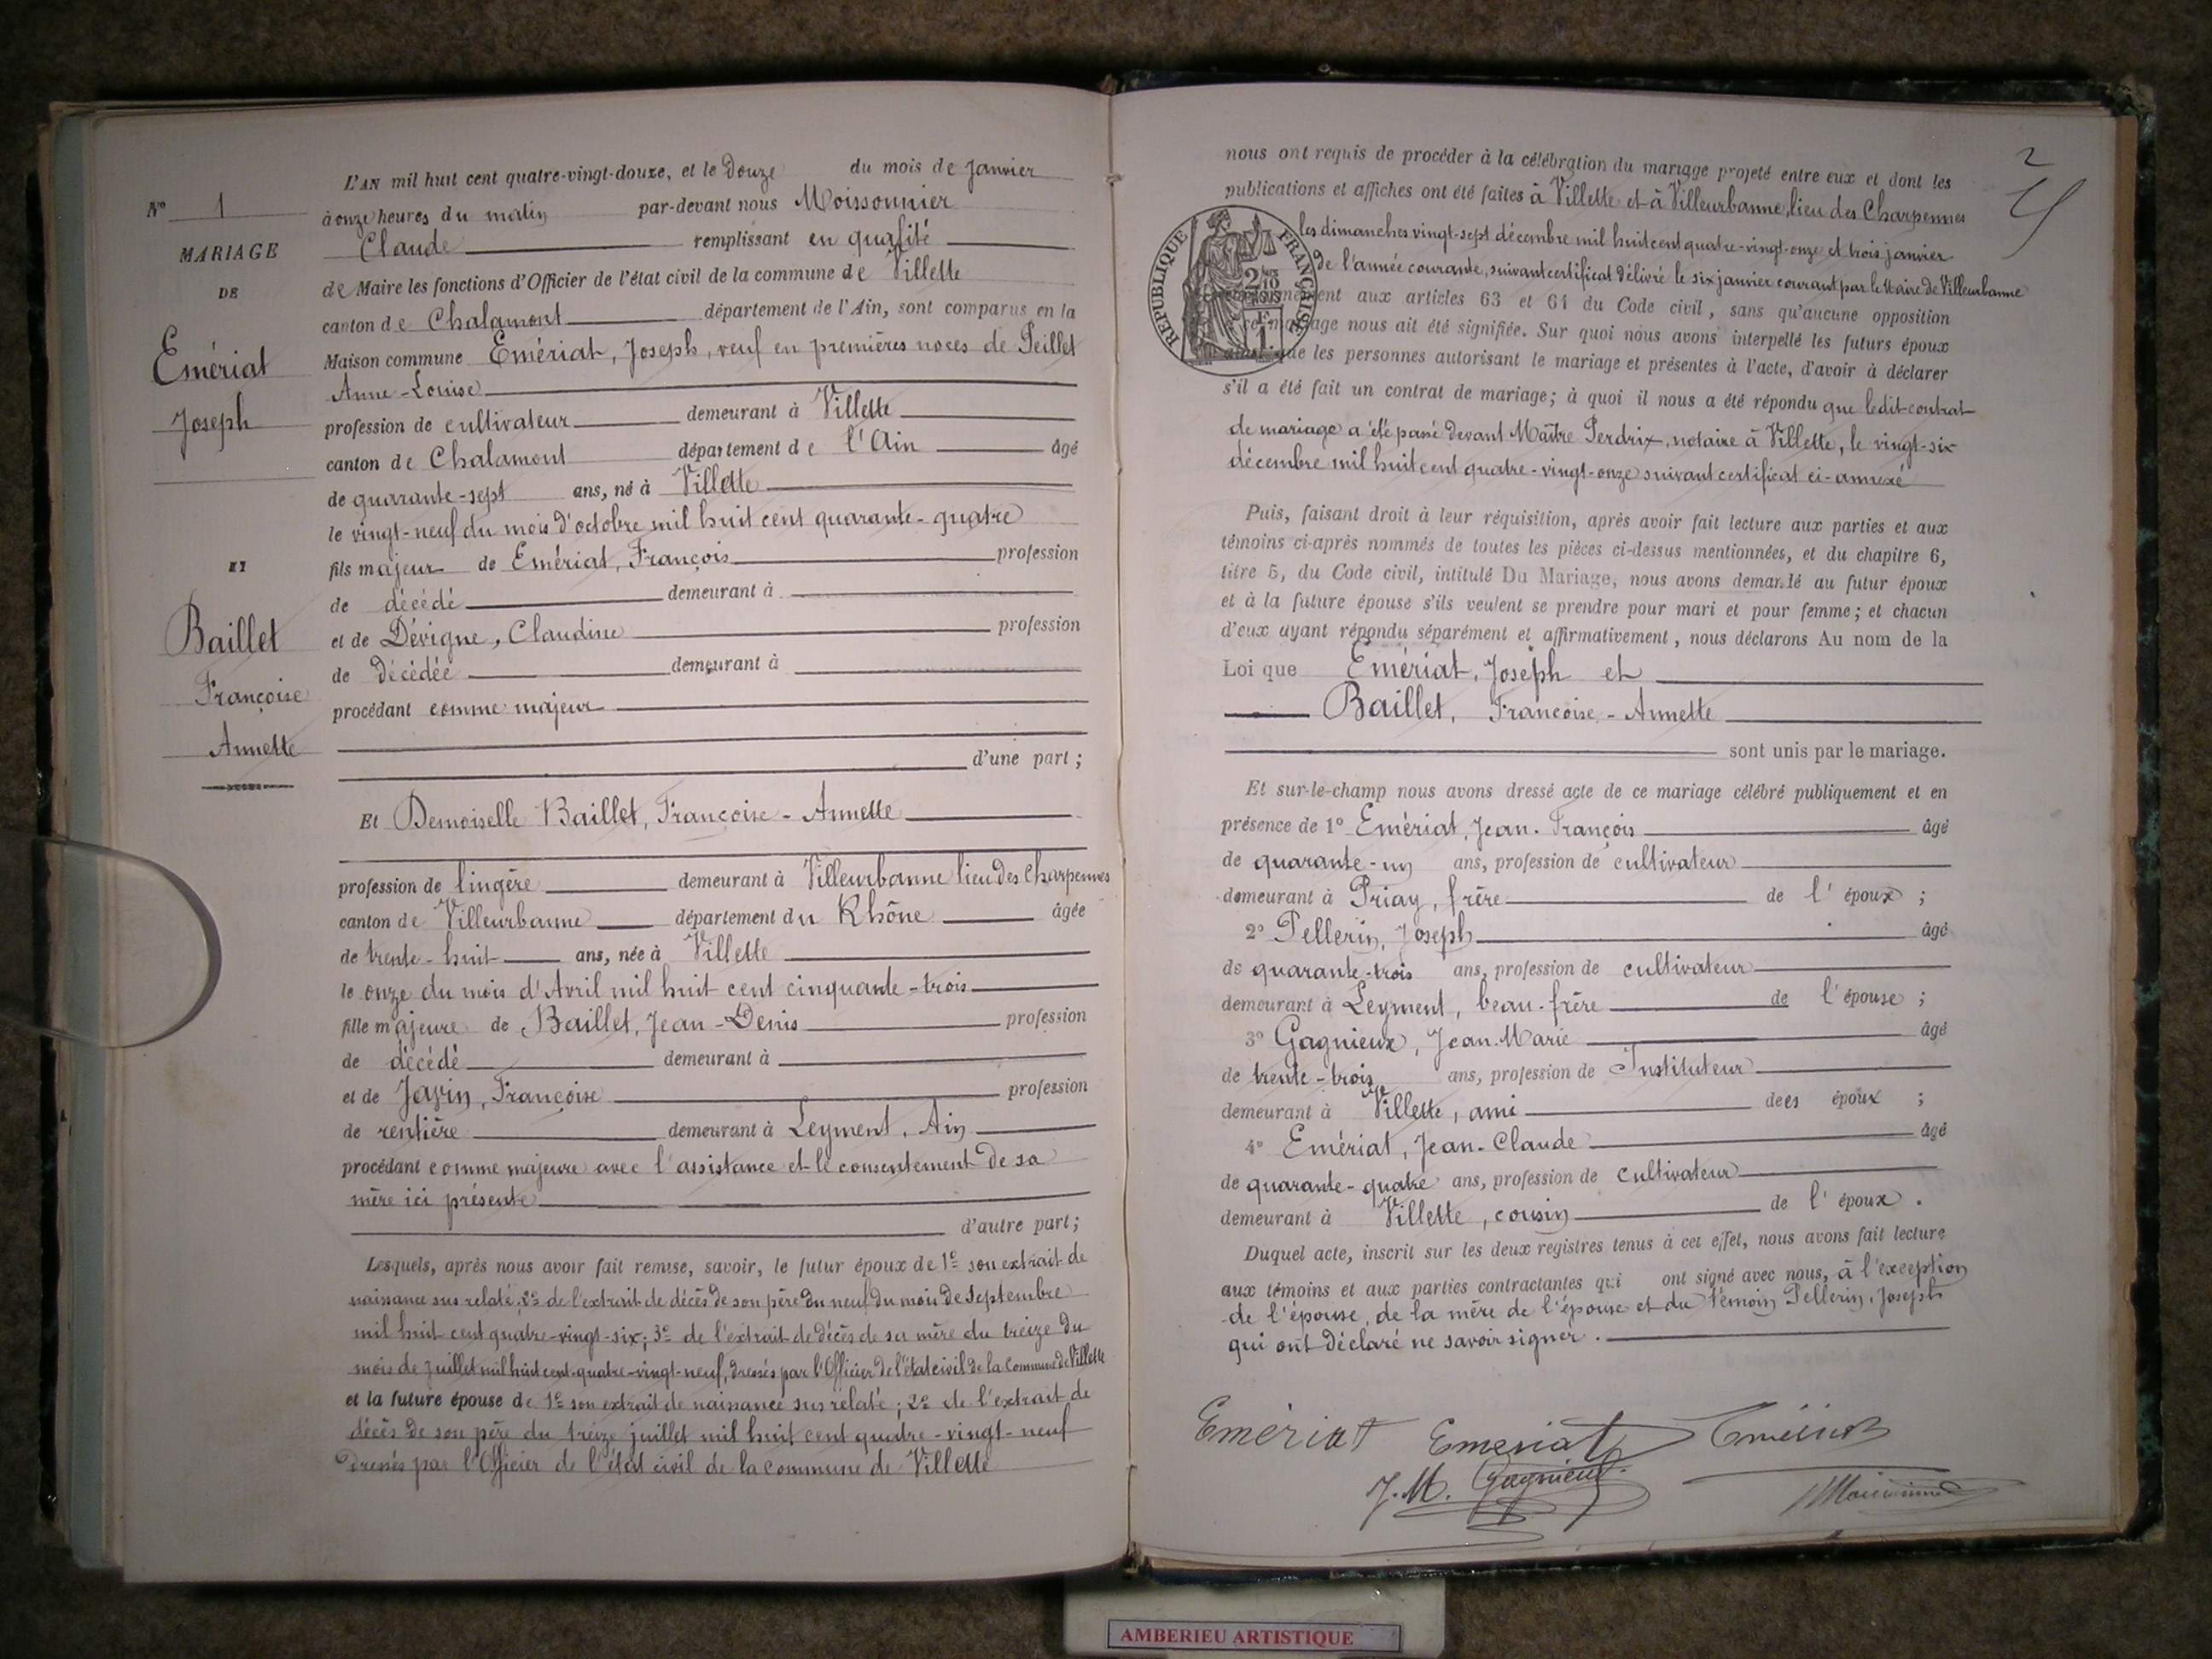 L'AN mil huit cent quatre-vingt-douze, et le Douze du mois de Janvier
à onze heures du matin par-devant nous Moissonnier
Claude remplissant en qualité
de Maire les fonctions d'Officier de l'état civil de la commune de Villette
canton de Chalamont département de l'Ain, sont comparus en la
Maison commune Emériat, Joseph, veuf en premières noces de Peillet
Anne-Louise
profession de cultivateur demeurant à Villette
canton de Chalamont département de l'Ain âgé
de quarante-sept ans, né à Villette
le vingt-neuf du mois d'octobre mil huit cent quarante-quatre
fils majeur de Emériat, François profession
de décédé demeurant à
et de Dévigne, Claudine profession
de Décédée demeurant à
procédant comme majeur
d'une part ;
Nº 1
MARIAGE
DE
Emériat
Joseph
ET
Baillet
Françoise
Annette
Et Demoiselle Baillet, Françoise-Annette
profession de lingère demeurant à Villeurbanne lieu des Charpennes
canton de Villeurbanne département du Rhône âgée
de trente-huit ans, née à Villette
le onze du mois d'Avril mil huit cent cinquante-trois
fille majeure de Baillet, Jean-Denis profession
de décédé demeurant à
et de Javin, Françoise profession
de rentière demeurant à Leyment, Ain
procédant comme majeure avec l'assistance et le consentement de sa
mère ici présente
d'autre part ;
Lesquels, après nous avoir fait remise, savoir, le futur époux de 1º son extrait de
naissance sus relaté, 2º de l'extrait de décès de son père du neuf du mois de Septembre
mil huit cent quatre-vingt-six ; 3º de l'extrait de décès de sa mère du treize du
mois de juillet mil huit cent-quatre-vingt-neuf, dressés par l'Officier de l'état civil de la Commune de Villette
et la future épouse de 1º son extrait de naissance sus relaté ; 2º de l'extrait de
décès de son père du treize juillet mil huit cent quatre-vingt-neuf
Dressés par l'Officier de l'état civil de la commune de Villette
2
nous ont requis de procéder à la célébration du mariage projeté entre eux et dont les
publications et affiches ont été faites à Villette et à Villeurbanne, lieu des Charpennes
les dimanches vingt-sept décembre mil huit cent quatre-vingt-onze et trois janvier
de l'année courante, suivant certificat délivré le six janvier courant par le Maire de Villeurbanne
aux articles 63 et 64 du Code civil, sans qu'aucune opposition
nous ait été signifiée. Sur quoi nous avons interpellé les futurs époux
que les personnes autorisant le mariage et présentes à l'acte, d'avoir à déclarer
s'il a été fait un contrat de mariage ; à quoi il nous a été répondu que ledit contrat
de mariage a été passé devant Maître Perdrix, notaire à Villette, le vingt-six
décembre mil huit cent quatre-vingt-onze suivant certificat ci-annexé
RÉPUBLIQUE FRANÇAISE
Puis, faisant droit à leur réquisition, après avoir fait lecture aux parties et aux
témoins ci-après nommés de toutes les pièces ci-dessus mentionnées, et du chapitre 6,
titre 5, du Code civil, intitulé Du Mariage, nous avons demandé au futur époux
et à la future épouse s'ils veulent se prendre pour mari et pour femme ; et chacun
d'eux ayant répondu séparément et affirmativement, nous déclarons Au nom de la
Loi que Emériat, Joseph et
Baillet, Françoise-Annette
sont unis par le mariage.
Et sur-le-champ nous avons dressé acte de ce mariage célébré publiquement et en
présence de 1º Emériat, Jean-François âgé
de quarante-un ans, profession de cultivateur
demeurant à Priay, frère de l'époux ;
2º Pellerin, Joseph âgé
de quarante-trois ans, profession de cultivateur
demeurant à Leyment, beau-frère de l'épouse ;
3º Gagnieux, Jean-Marie âgé
de trente-trois ans, profession de Instituteur
demeurant à Villette, ami dees époux ;
4º Emériat, Jean-Claude âgé
de quarante-quatre ans, profession de cultivateur
demeurant à Villette, cousin de l'époux.
Duquel acte, inscrit sur les deux registres tenus à cet effet, nous avons fait lecture
aux témoins et aux parties contractantes qui ont signé avec nous, à l'exception
de l'épouse, de la mère de l'épouse et du témoin Pellerin, Joseph
qui ont déclaré ne savoir signer.
Emériat Emeriat
J. M. Gagnieux
AMBERIEU ARTISTIQUE